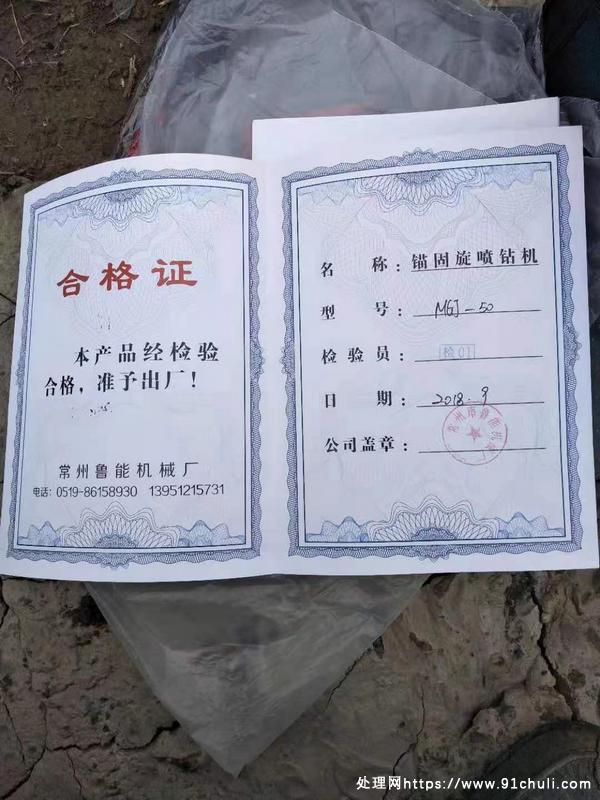 合格证
本产品经检验
合格，准予出厂！
常州鲁能机械厂
电话：0519-86158930 13951215731
名 称：锚固旋喷钻机
型 号：MGJ-50
检验员：检01
日 期：2018.9
公司盖章：
处理网https://www.91chuli.com